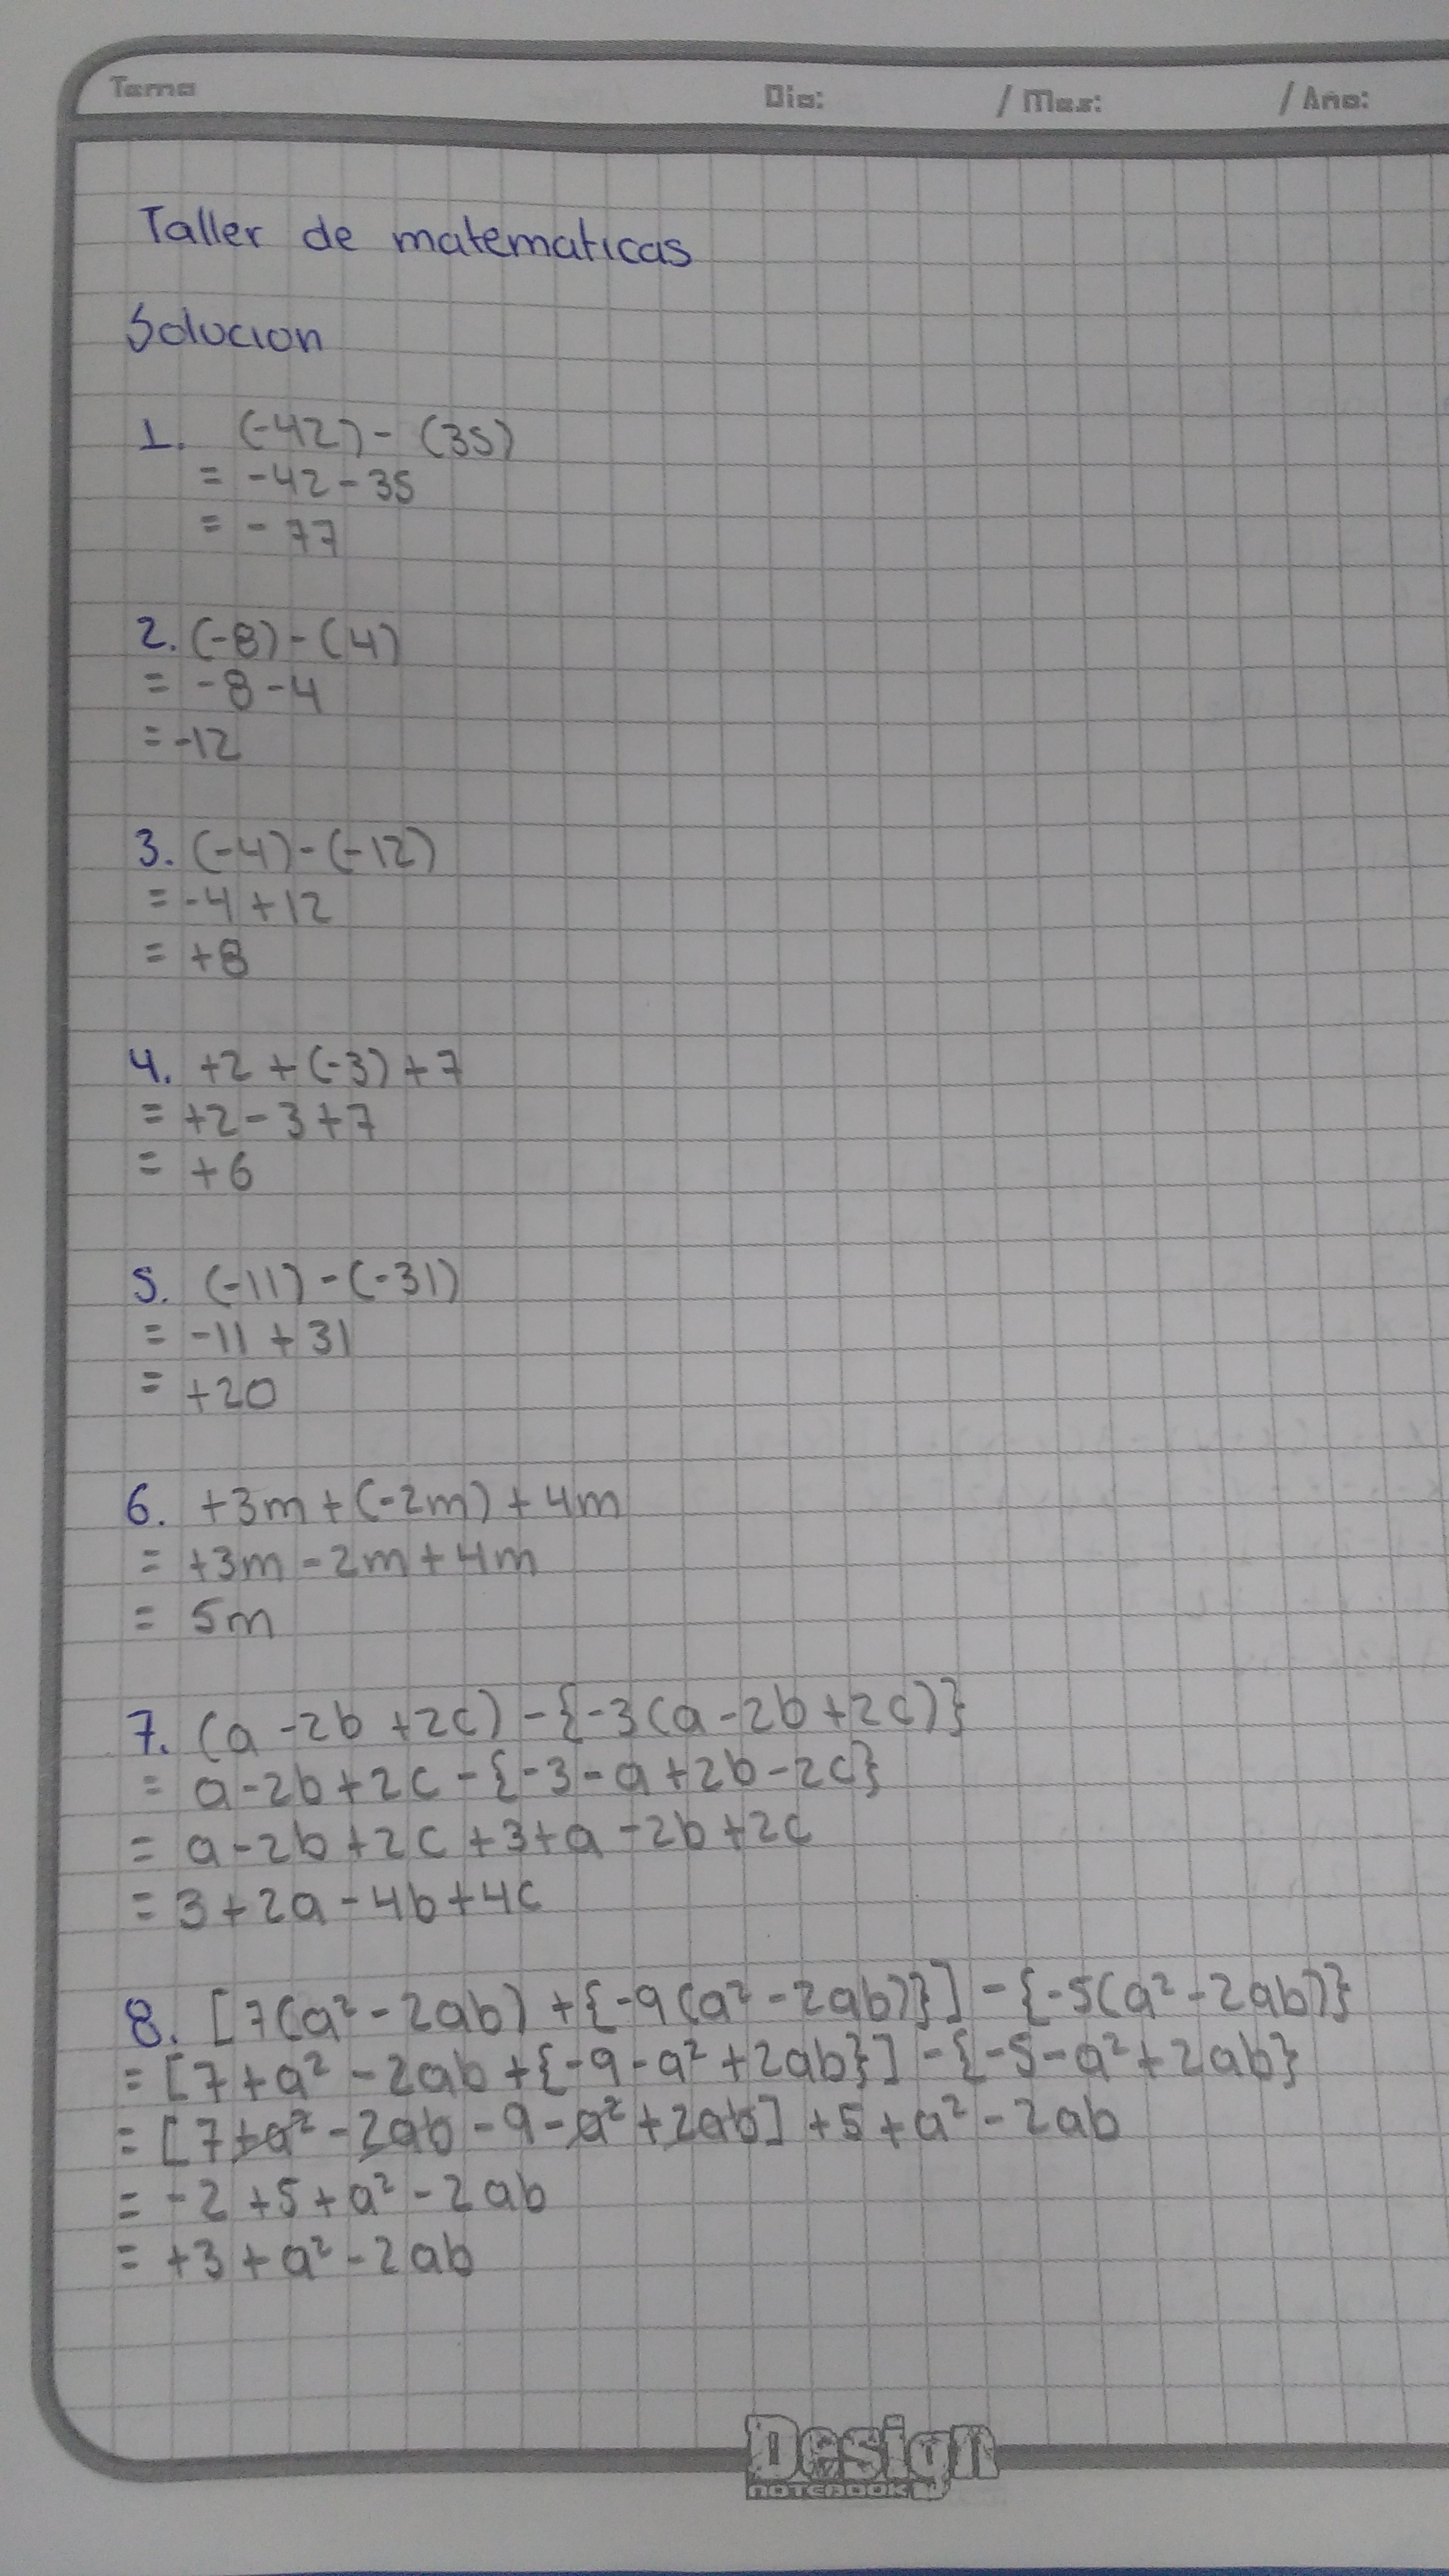 Tema Dia: / Mes: / Año:
Taller de matematicas
Solucion
1. (-42) - (35)
= -42 - 35
= - 77
2. (-8) - (4)
= -8 - 4
= -12
3. (-4) - (-12)
= -4 + 12
= +8
4. +2 + (-3) + 7
= +2 - 3 + 7
= +6
5. (-11) - (-31)
= -11 + 31
= +20
6. +3m + (-2m) + 4m
= +3m - 2m + 4m
= 5m
7. (a - 2b + 2c) - {-3(a - 2b + 2c)}
= a - 2b + 2c - {-3 - a + 2b - 2c}
= a - 2b + 2c + 3 + a - 2b + 2c
= 3 + 2a - 4b + 4c
8. [7(a² - 2ab) + {-9(a² - 2ab)}] - {-5(a² - 2ab)}
= [7 + a² - 2ab + {-9 - a² + 2ab}] - {-5 - a² + 2ab}
= [7 + a² - 2ab - 9 - a² + 2ab] + 5 + a² - 2ab
= -2 + 5 + a² - 2ab
= +3 + a² - 2ab
Design
NOTEBOOK